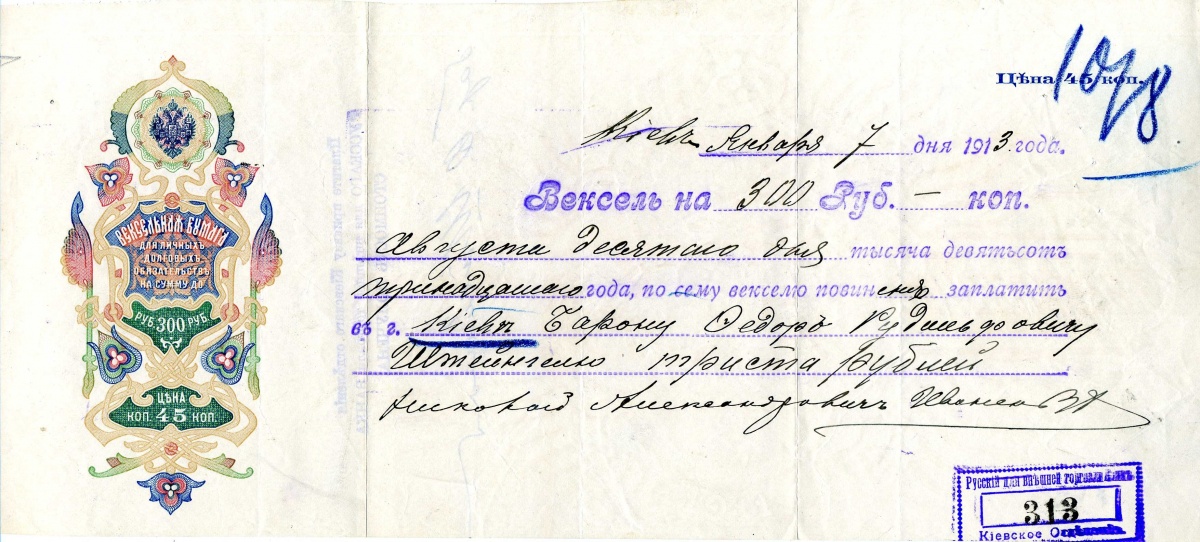 Цѣна 45 коп.
1078
Кіевъ Января 7 дня 1913 года.
Вексель на 300 Руб. — коп.
Августа десятаго дня тысяча девятьсотъ
тринадцатаго года, по сему векселю повиненъ заплатить
въ г. Кіевѣ Барону Федору Рудольфовичу
Штейнгелю триста рублей
Александровичъ Иванов
ВЕКСЕЛЬНАЯ БУМАГА
ДЛЯ ЛИЧНЫХЪ
ДОЛГОВЫХЪ
ОБЯЗАТЕЛЬСТВЪ
НА СУММУ ДО
РУБ. 300 РУБ.
ЦѢНА
КОП. 45 КОП.
Русскій для внѣшней торговли банкъ
313
Кіевское Отдѣленіе